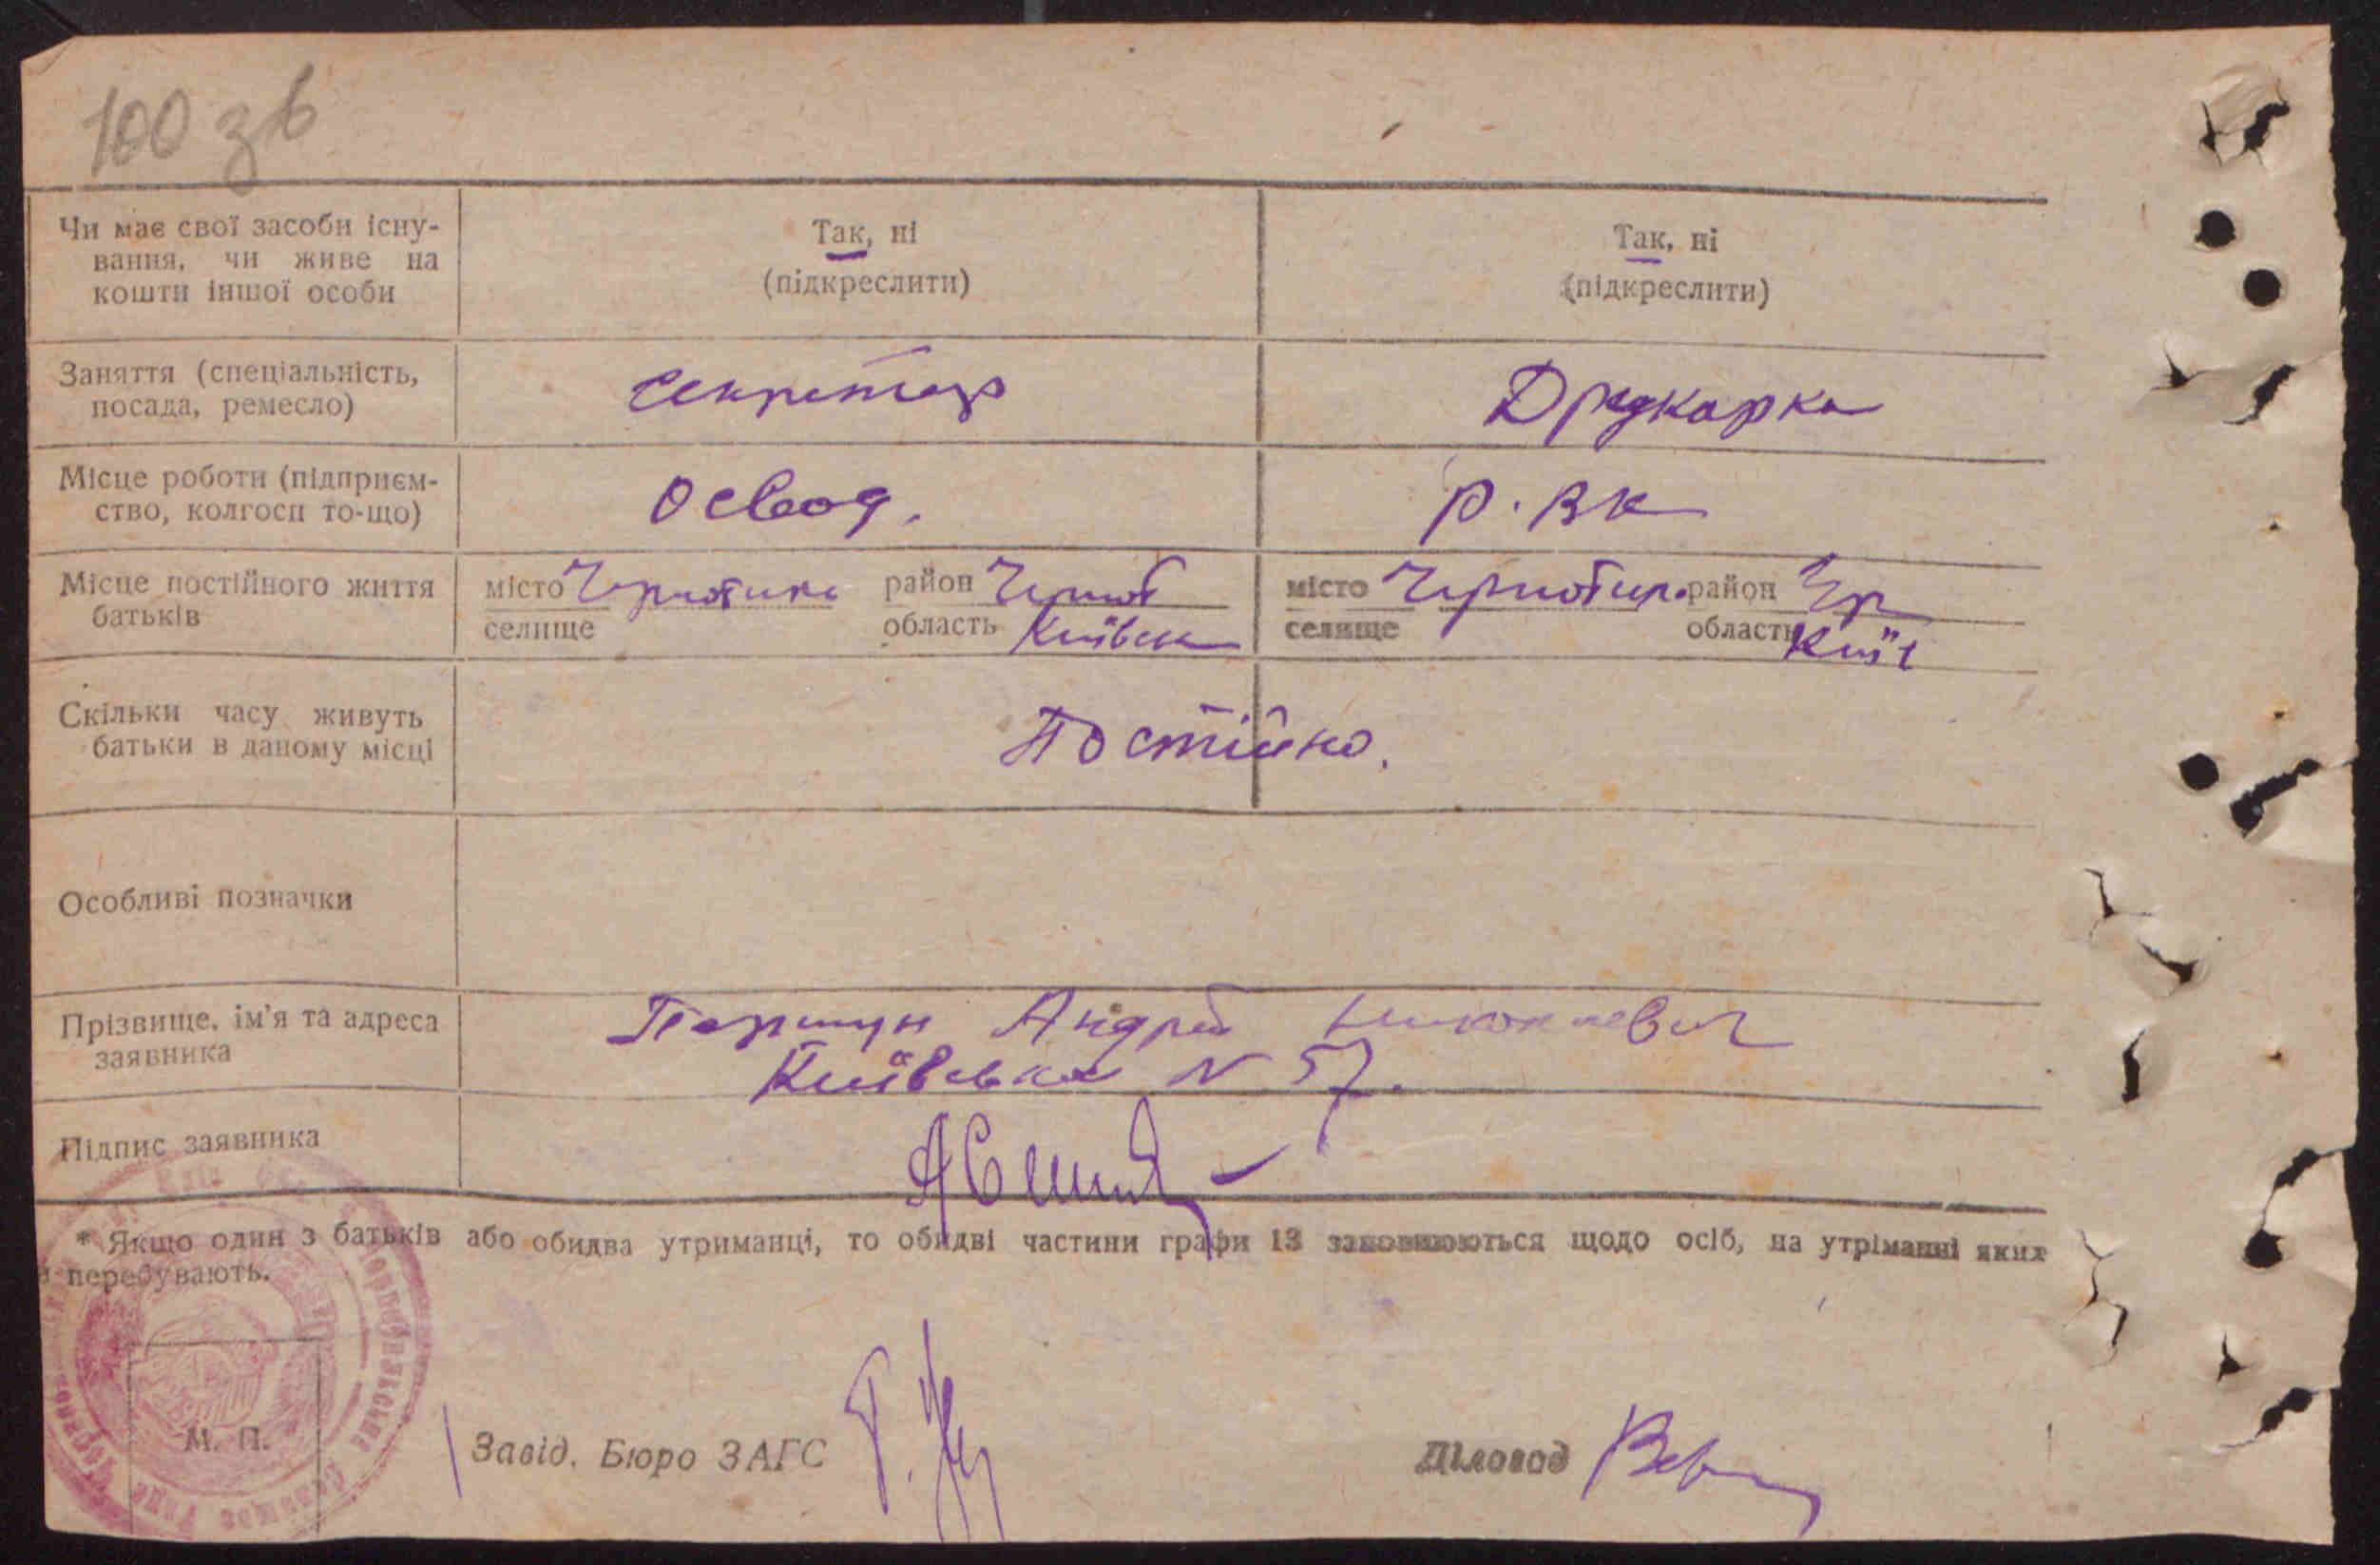 100 зв
Чи має свої засоби існу-
вання, чи живе на
кошти іншої особи
Так, ні
(підкреслити)
Так, ні
(підкреслити)
Заняття (спеціальність,
посада, ремесло)
Секретар
Друкарка
Місце роботи (підприєм-
ство, колгосп то-що)
Освод.
Р. ВК
Місце постійного життя
батьків
місто Чорнобиль район Чорноб
селище область Київськ
місто Чорнобил. район Чор
селище область Київ
Скільки часу живуть
батьки в даному місці
Постійно.
Особливі позначки
Прізвище, ім'я та адреса
заявника
Андрей
Київська N 57.
Підпис заявника
* Якщо один з батьків або обидва утриманці, то обидві частини графи 13 заповнюються щодо осіб, на утріманні яких
перебувають.
М. П.
Завід. Бюро ЗАГС
Діловод